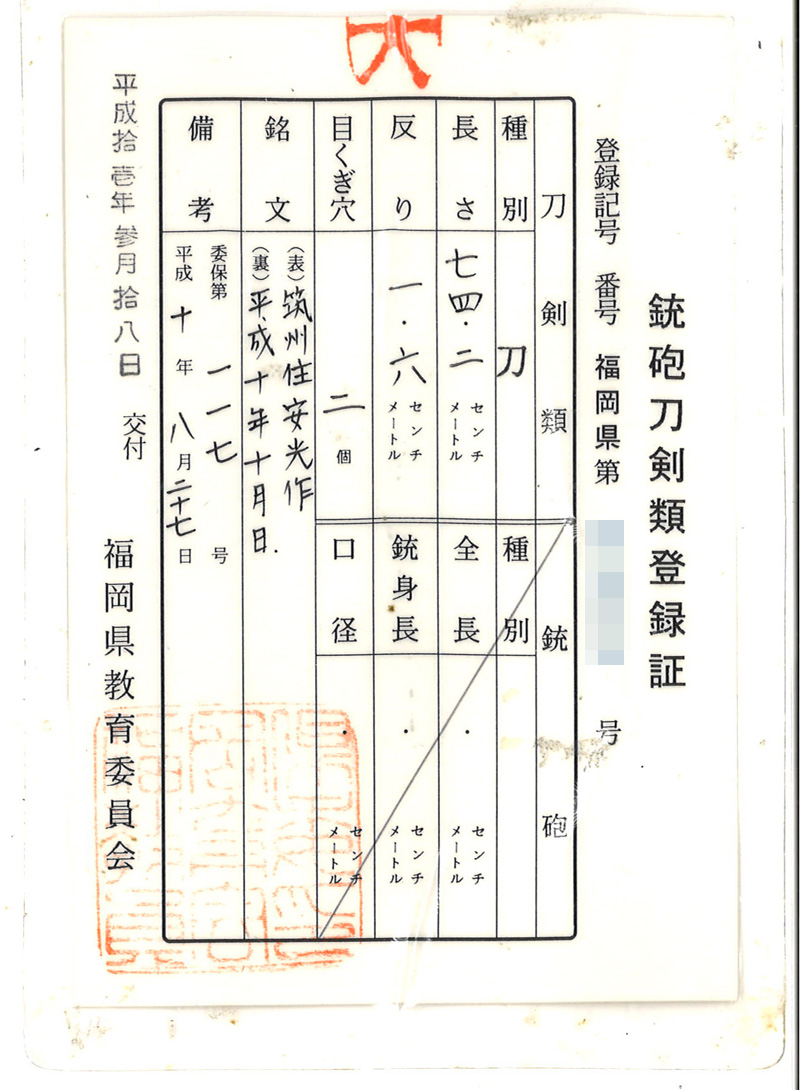 銃砲刀剣類登録証
登録記号 番号 福岡県第 号
刀剣類
種別 刀
長さ 七四・二 センチメートル
反り 一・六 センチメートル
目くぎ穴 二 個
銘文 (表) 筑州住安光作
(裏) 平成十年十月日.
備考 委保第 一一七 号
平成 十 年 八 月 二十七 日
銃砲
種別
全長 ・ センチメートル
銃身長 ・ センチメートル
口径 ・ センチメートル
平成拾壱年参月拾八日 交付
福岡県教育委員会